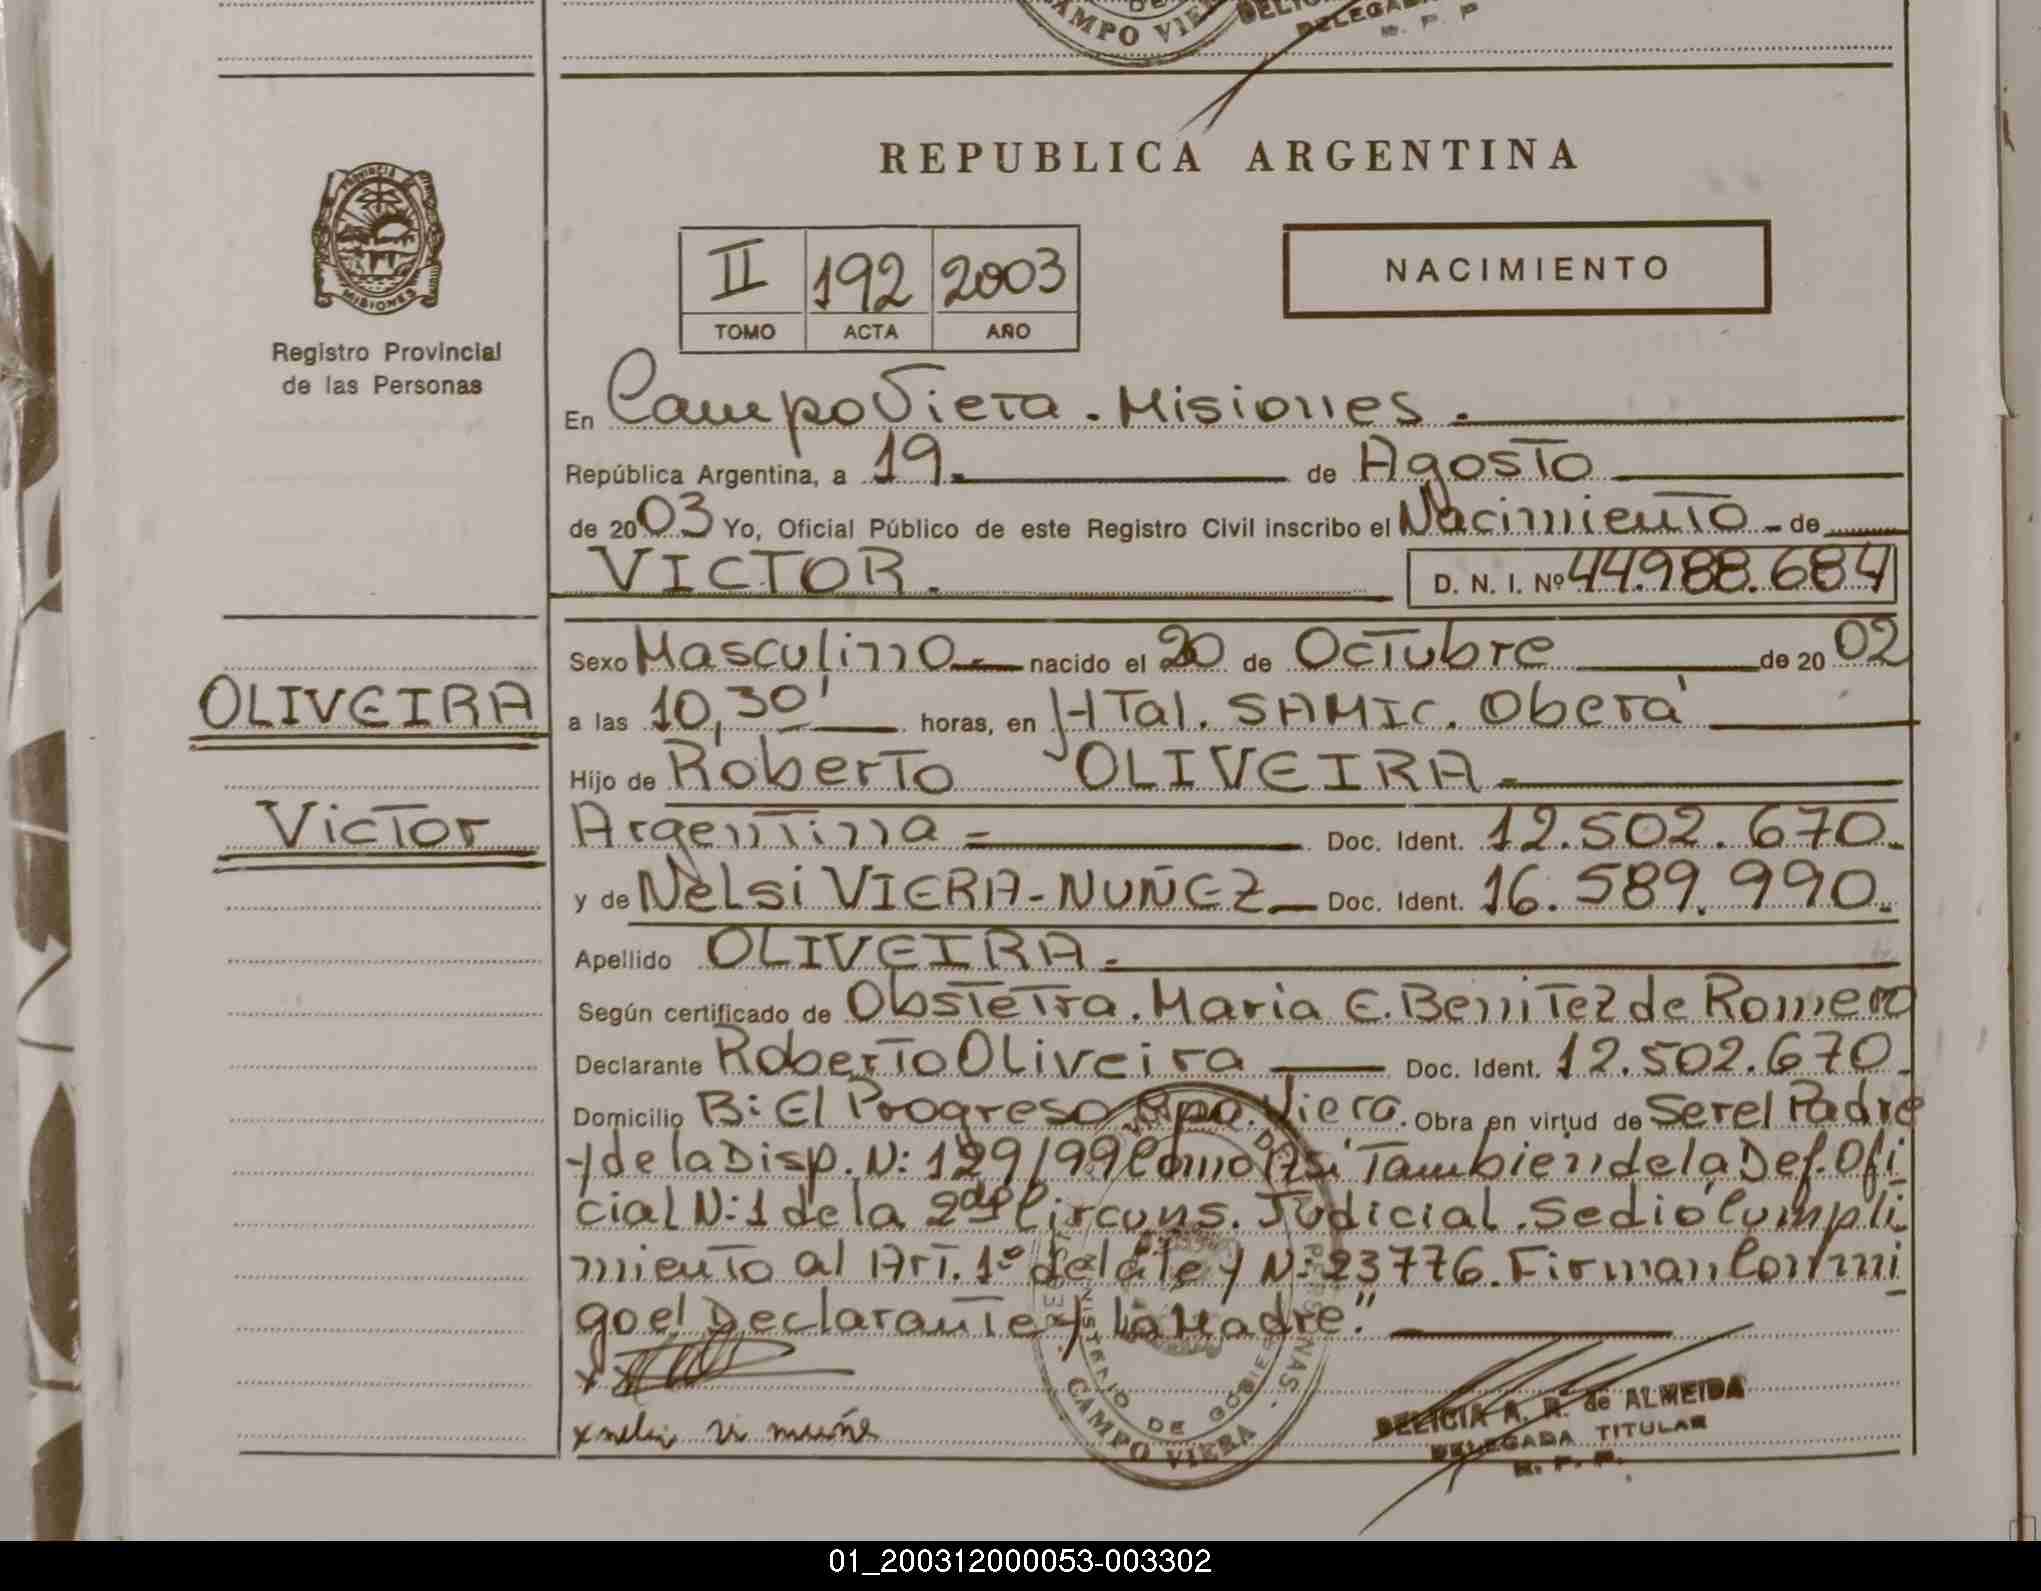 CAMPO VIERA
DELEGADA
R. P. P
PROVINCIA DE
MISIONES
Registro Provincial
de las Personas
OLIVEIRA
Victor
REPUBLICA ARGENTINA
II 192 2003
TOMO ACTA AÑO
NACIMIENTO
En Campo Viera - Misiones -
República Argentina, a 19 de Agosto
de 2003 Yo, Oficial Público de este Registro Civil inscribo el Nacimiento - de
VICTOR. D. N. I. Nº 44.988.684
Sexo Masculino nacido el 20 de Octubre de 2002
a las 10,30' horas, en HTal. SAMIC. Oberá
Hijo de Roberto OLIVEIRA
Argentina Doc. Ident. 12.502.670.
y de Nelsi VIERA-NUÑEZ Doc. Ident. 16.589.990.
Apellido OLIVEIRA.
Según certificado de Obstetra. Maria E. Benitez de Romero
Declarante Roberto Oliveira Doc. Ident. 12.502.670.
Domicilio B: El Progreso Cpo. Viera. Obra en virtud de Ser el Padre
y de la Disp. N: 129/99 Como Asi Tambien de la Def. Ofi
cial N: 1 de la 2da Circuns. Judicial. Se dió Cumpli
miento al Art. 1º de la ley N: 23776. Firman Conmi
go el Declarante y la Madre."
MINISTERIO DE GOBIERNO
CAMPO VIERA
DELICIA A. R. de ALMEIDA
DELEGADA TITULAR
R. P. P.
01_200312000053-003302